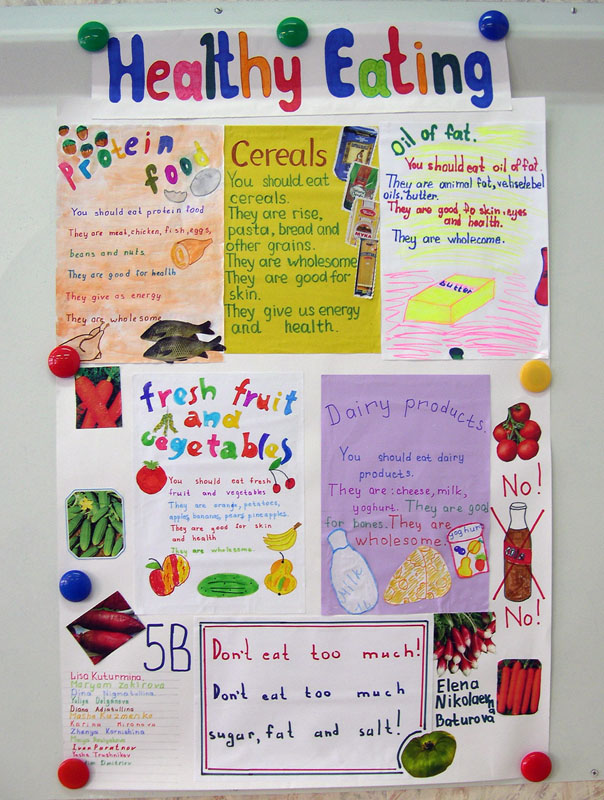 Healthy Eating
Protein
food
You should eat protein food
They are meat, chicken, fish, eggs,
beans and nuts
They are good for health
They give us energy
They are wholesome
Cereals
You should eat
cereals.
They are rise,
pasta, bread and
other grains.
They are wholesome
They are good for
skin.
They give us energy
and health.
Oil of fat.
You should eat oil of fat.
They are animal fat, vehselebel
oils, butter.
They are good, fo skin, eyes
and health.
They are wholecome.
butter
fresh fruit
and
vegetables
You should eat fresh
fruit and vegetables
They are orange, potatoes,
apples, bananas, pears, pineapples.
They are good for skin
and health
They are wholesome.
Dairy products.
You should eat dairy
products.
They are: cheese, milk,
yoghurt. They are good
for bones. They are
wholesome.
Milk
yoghurt
No!
No!
5B
Lisa Kuturmina.
Maryam Zakirova
Dina Nigmatullina.
Yuliya Delganova
Diana Adiatullina
Masha Kuzmenko
Karina Mironova
Zhenya Kornishina
Ivan Puratnov
Yasha Trushnikov
Don't eat too much!
Don't eat too much
sugar, fat and salt!
Elena
Nikolaevna
Baturova